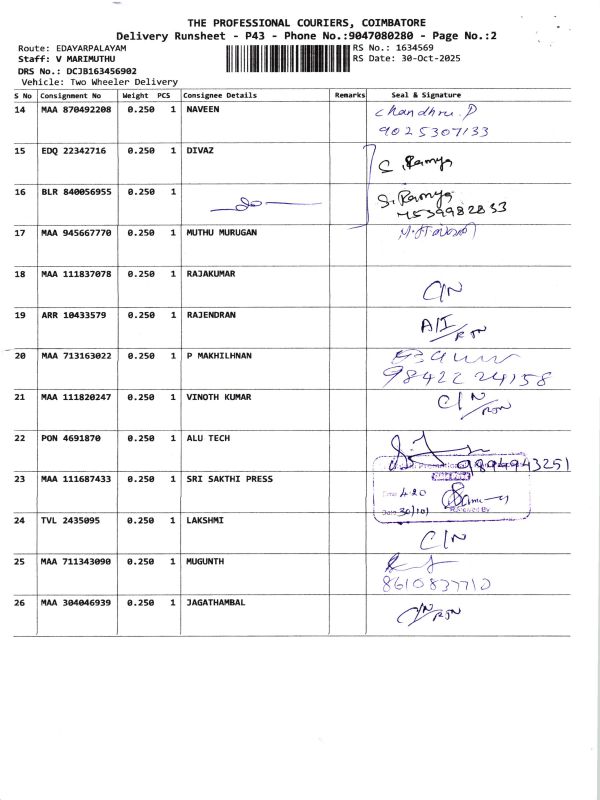 THE PROFESSIONAL COURIERS, COIMBATORE
Delivery Runsheet - P43 - Phone No.:9047080280 - Page No.:2
Route: EDAYARPALAYAM RS No.: 1634569
Staff: V MARIMUTHU RS Date: 30-Oct-2025
DRS No.: DCJB163456902
Vehicle: Two Wheeler Delivery
S No Consignment No Weight PCS Consignee Details Remarks Seal & Signature
14 MAA 870492208 0.250 1 NAVEEN Chandhru.P
9025307133
15 EDQ 22342716 0.250 1 DIVAZ S. Ramya
16 BLR 840056955 0.250 1 S. Ramya
7539982833
17 MAA 945667770 0.250 1 MUTHU MURUGAN
18 MAA 111837078 0.250 1 RAJAKUMAR C/N
19 ARR 10433579 0.250 1 RAJENDRAN A/I/RTN
20 MAA 713163022 0.250 1 P MAKHILHNAN
9842224158
21 MAA 111820247 0.250 1 VINOTH KUMAR C/N/RTN
22 PON 4691870 0.250 1 ALU TECH
9894943251
23 MAA 111687433 0.250 1 SRI SAKTHI PRESS
Time 4.20
Date 30/10/ Received By
24 TVL 2435095 0.250 1 LAKSHMI C/N
25 MAA 711343090 0.250 1 MUGUNTH
8610837710
26 MAA 304046939 0.250 1 JAGATHAMBAL C/N/RTN